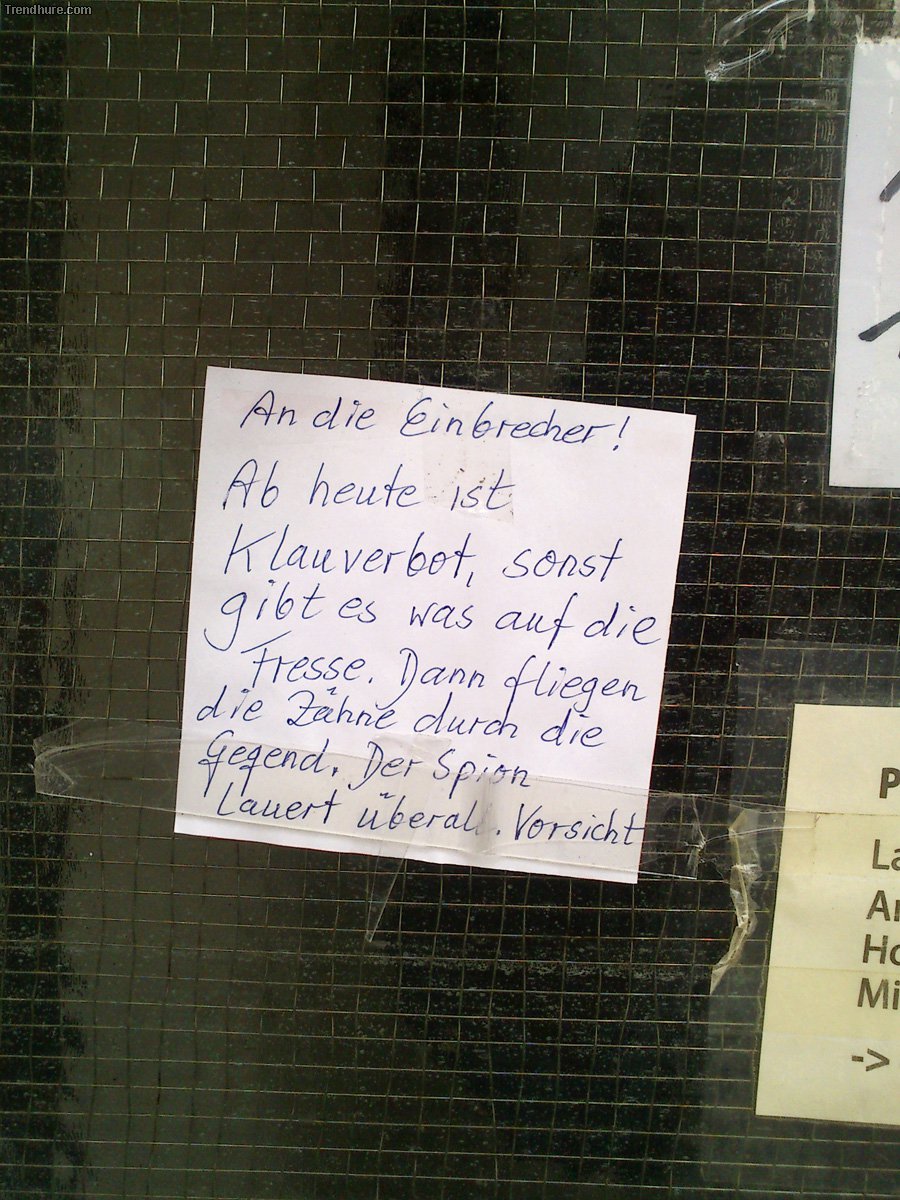 Trendhure.com
An die Einbrecher!
Ab heute ist
Klauverbot, sonst
gibt es was auf die
Fresse. Dann fliegen
die Zähne durch die
Gegend. Der Spion
Lauert überall. Vorsicht
P
La
Ar
Ho
Mi
->